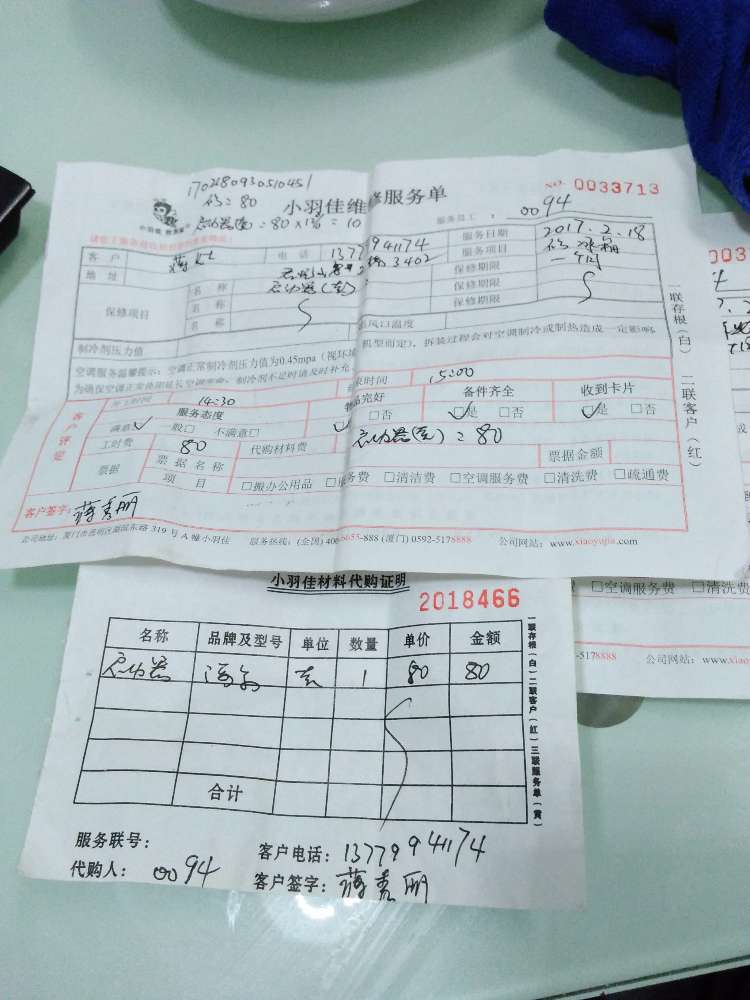 1702180930510451
小羽佳维修服务单
NO. 0033713
服务员工: 0094
= 80
= 80 × 1% = 10
小羽佳
客户
电话 13779941174
服务日期 2017.2.18
地址
3402
服务项目 冰箱
保修项目
名称
启动器(套)
保修期限 一个月
名称
保修期限
名称
保修期限
制冷剂压力值
出风口温度
空调服务温馨提示:空调正常制冷剂压力值为0.45mpa(视环境
机型而定),拆装过程会对空调制冷或制热造成一定影响
为确保空调正常使用延长空调寿命,制冷剂不足时请及时补充
客户评定
开工时间 14:30
结束时间 15:00
服务态度
物品完好
备件齐全
收到卡片
满意☑ 一般□ 不满意□
☑ □否
☑是 □否
☑是 □否
工时费 80
代购材料费 启动器(套)=80
票据
票据名称
票据金额
项目
□搬办公用品 □服务费 □清洁费 □空调服务费 □清洗费 □疏通费
客户签字: 蒋秀丽
公司地址:厦门市思明区湖滨东路 319 号 A 幢小羽佳
服务热线:(全国) 400-6655-888 (厦门) 0592-5178888
公司网站:www.xiaoyujia.com
一联存根(白) 二联客户(红)
小羽佳材料代购证明
2018466
名称 品牌及型号 单位 数量 单价 金额
启动器 通用 套 1 80 80
合计
服务联号:
客户电话: 13779941174
代购人: 0094
客户签字: 蒋秀丽
一联存根(白) 二联客户(红) 三联服务单(黄)
003
□空调服务费 □清洗费
-5178888
公司网站:www.xiao